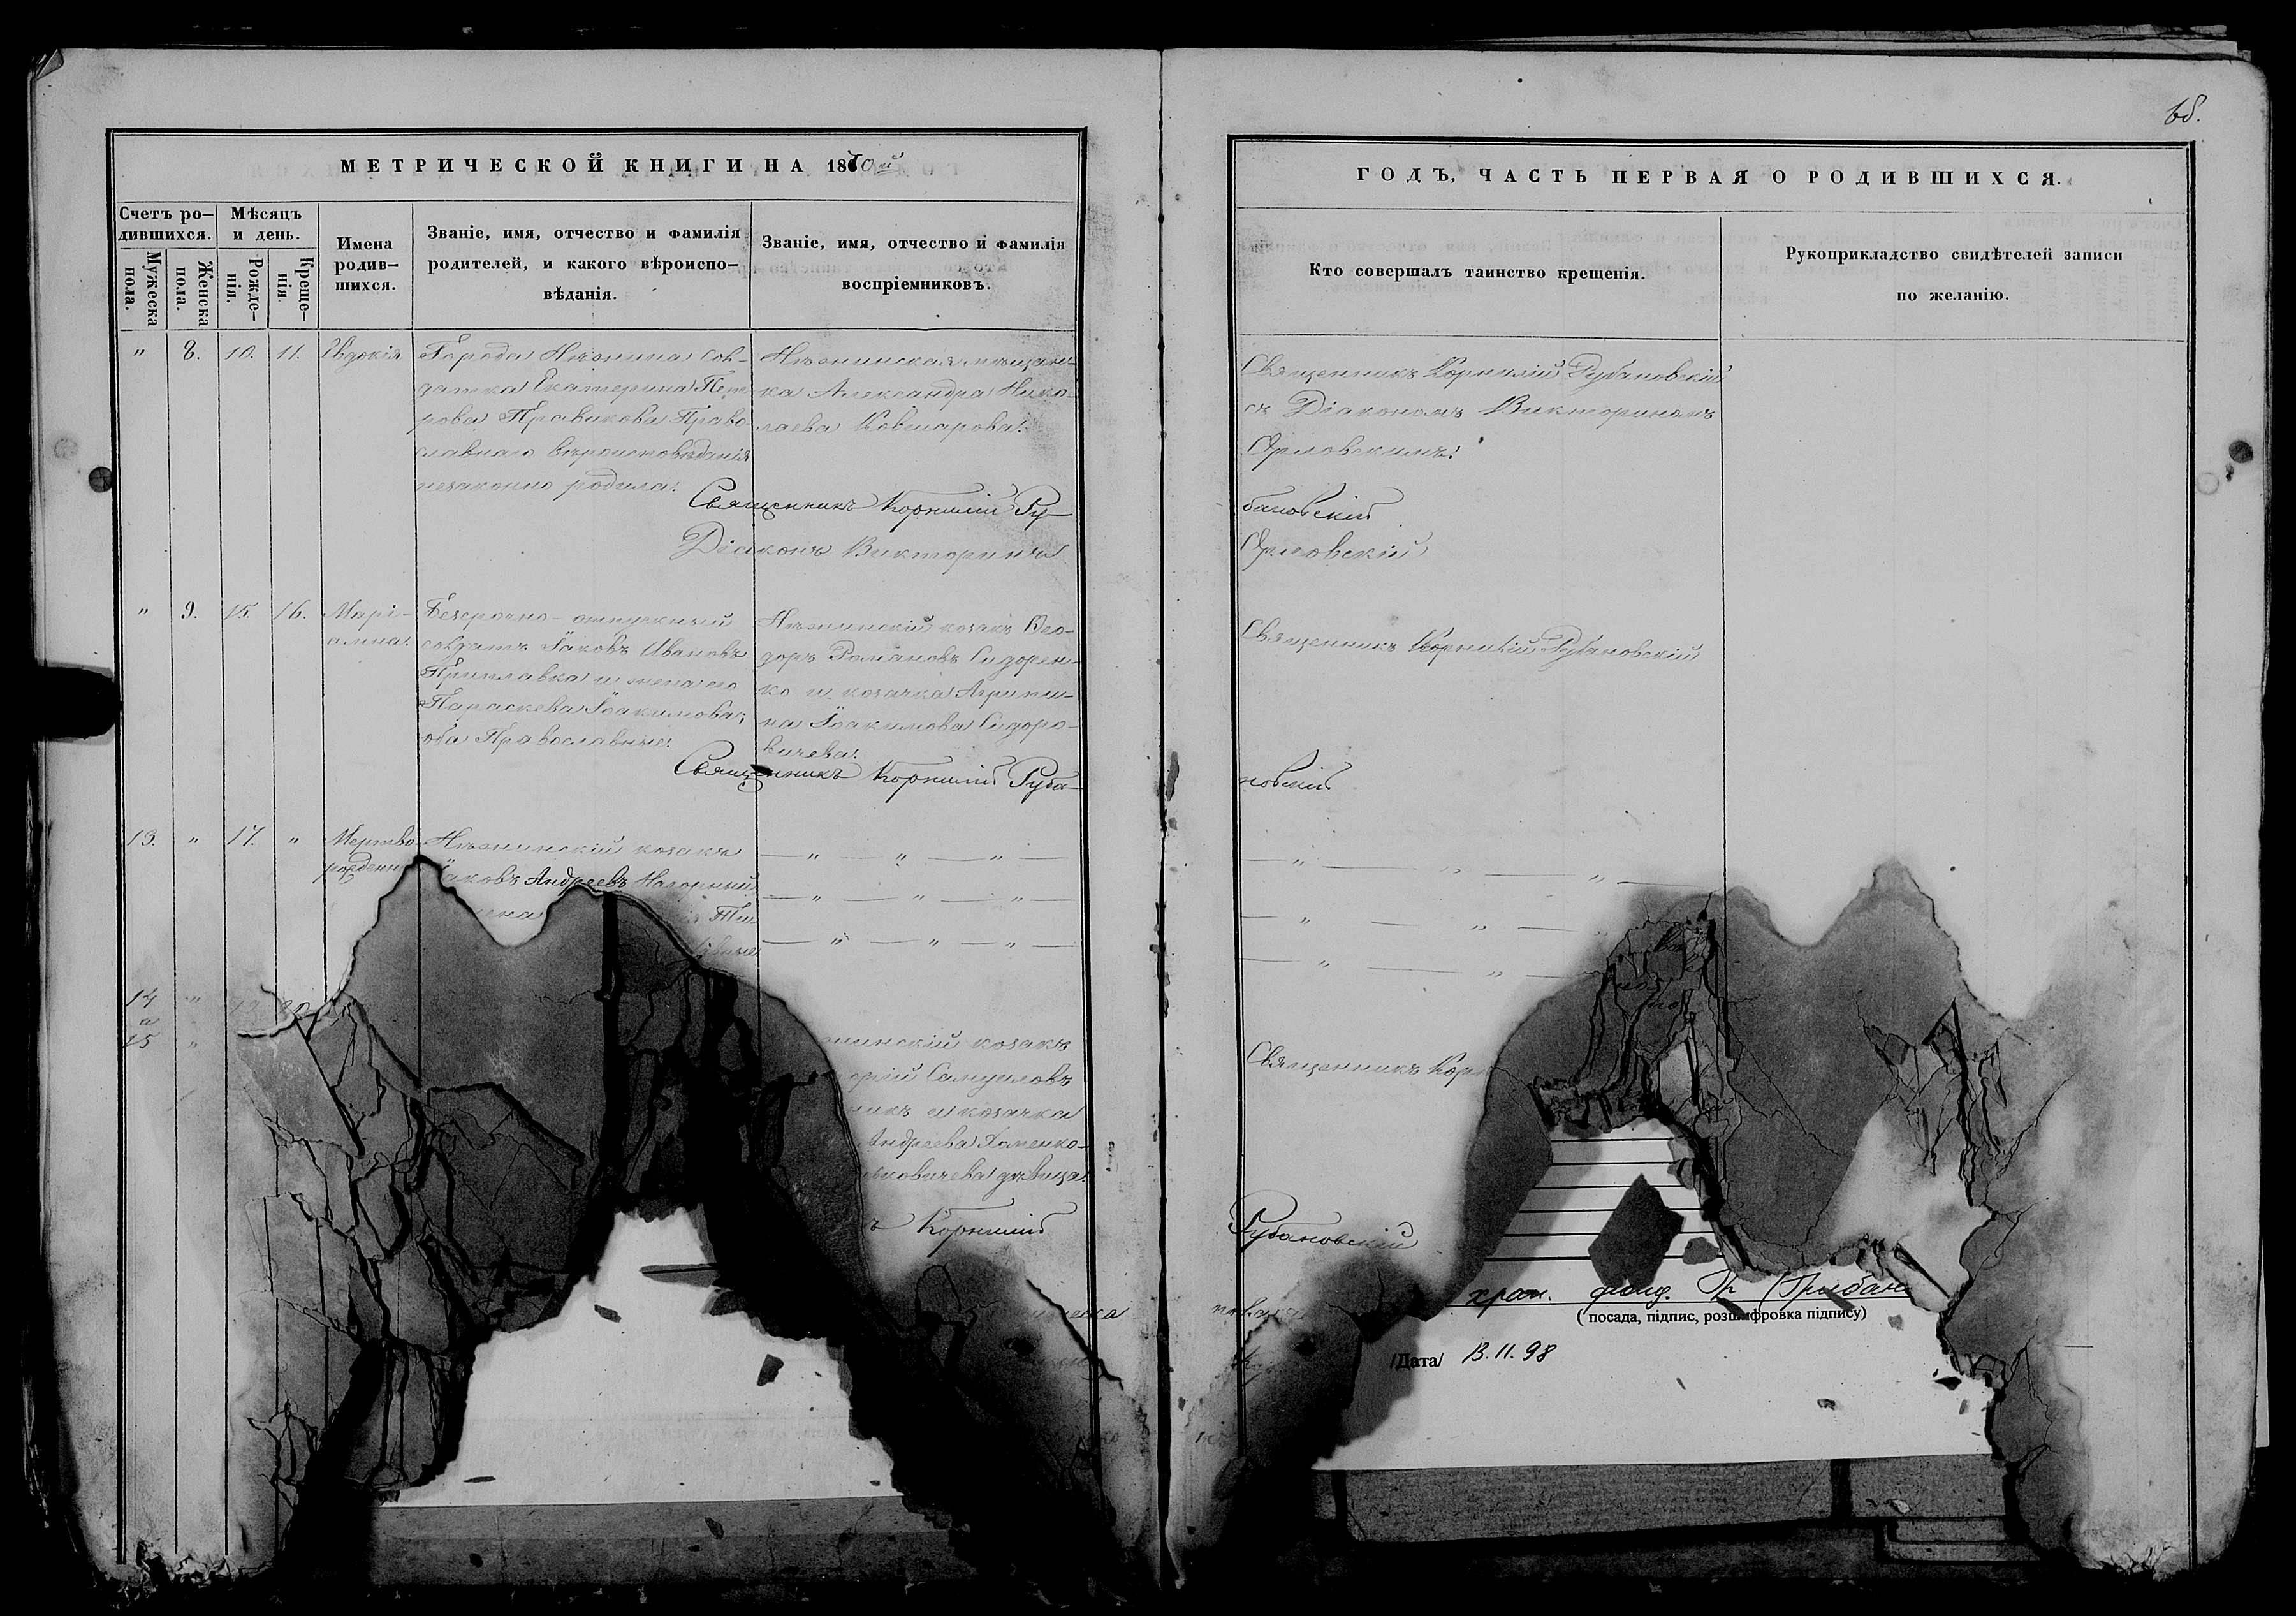 66.
МЕТРИЧЕСКОЙ КНИГИ НА 1870й
ГОДЪ, ЧАСТЬ ПЕРВАЯ О РОДИВШИХСЯ.
Счетъ ро-
дившихся.
Мужеска
пола.
Женска
пола.
Мѣсяцъ
и день.
Рожде-
нія.
Креще-
нія
Имена
родив-
шихся.
Званіе, имя, отчество и фамилія
родителей, и какого вѣроиспо-
вѣданія.
Званіе, имя, отчество и фамилія
воспріемниковъ.
Кто совершалъ таинство крещенія.
Рукоприкладство свидѣтелей записи
по желанію.
" 8. 10. 11. Евдокія
Города Нѣжина сол-
датка Екатерина Пет-
рова Правикова Право
славнаго вѣроисповѣданія
незаконно родила.
Нѣжинская мѣщан-
ка Александра Нико-
лаева Ковшарова.
Священникъ Корнилій Рубановскій
съ Діакономъ Викториномъ
Орловскимъ.
Священникъ Корнилій Ру-
бановскій
Діаконъ Викторинъ
Орловскій
" 9. 15. 16. Марі-
амна.
Безсрочно-отпускный
солдатъ Іаковъ Ивановъ
Приплавка и жена его
Параскева Іоакимова,
оба Православные.
Нѣжинскій козакъ Ѳео-
доръ Романовъ Сидорен-
ко и козачка Агрипи-
на Іоакимова Сидоро-
вичева.
Священникъ Корнилій Рубановскій
Священникъ Корнилій Руба-
новскій
13. " 17. " Мертво
рожденн
Нѣжинскій козакъ
аковъ Андреевъ Нагорный
ена Ти
вные
14
а
15
инскій козакъ
орій Самуиловъ
икъ и козачка
Андреева Хоменко-
ьковичева дѣвица.
Священникъ Кор
ъ Корнилій
Рубановскій
хран. фонд. Грибан
( посада, підпис, розшифровка підпису)
/Дата/ 13.11.98